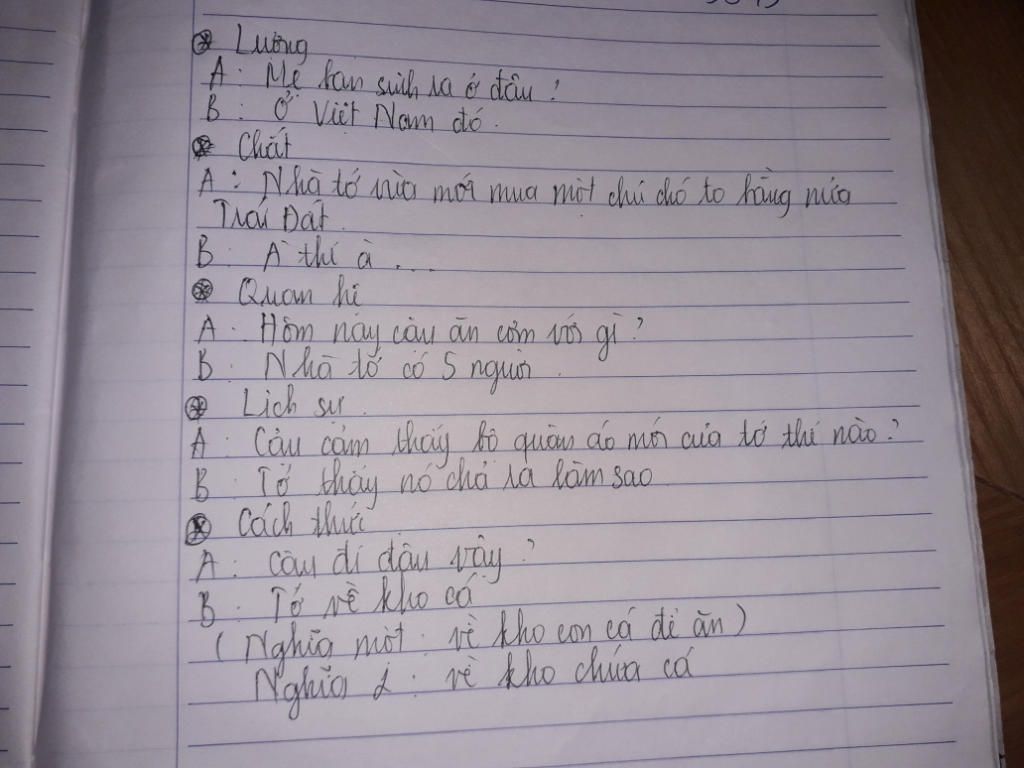 Lượng
A: Mẹ bạn sinh ra ở đâu?
B: Ở Việt Nam đó.
Chất
A: Nhà tớ vừa mới mua một chú chó to bằng nửa
Trái Đất.
B: À thế à...
Quan hệ
A: Hôm nay cậu ăn cơm với gì?
B: Nhà tớ có 5 người.
Lịch sự.
A: Cậu cảm thấy bộ quần áo mới của tớ thế nào?
B: Tớ thấy nó chả ra làm sao
Cách thức
A: Cậu đi đâu vậy?
B: Tớ về kho cá
(Nghĩa một: về kho con cá để ăn)
Nghĩa 2: về kho chứa cá